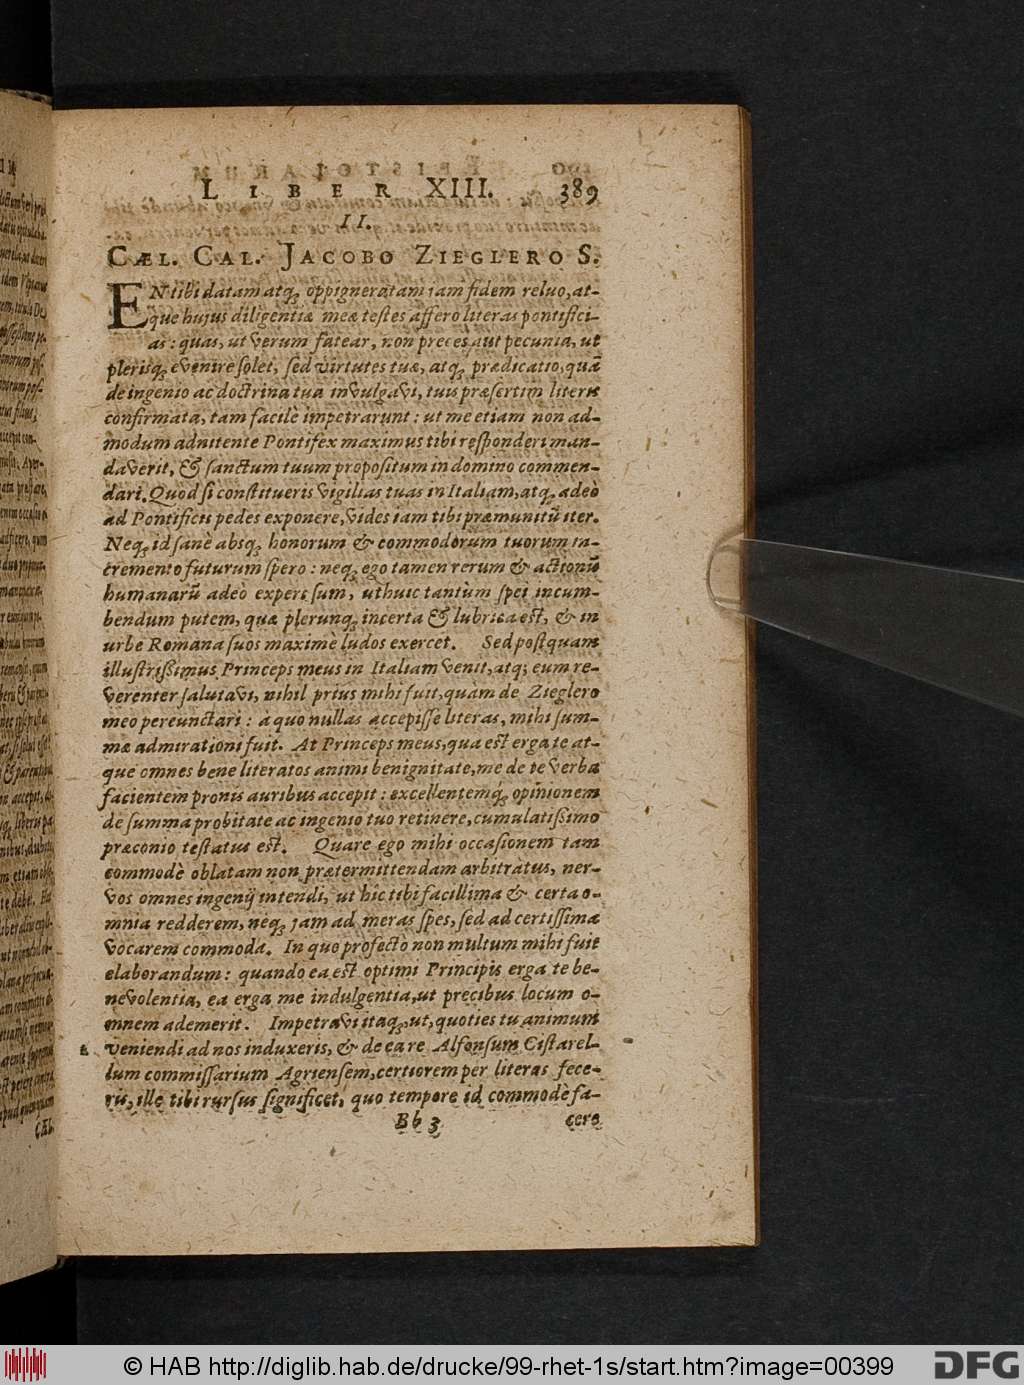 LIBER XIII. 389
II.
CÆL. CAL. JACOBO ZIEGLERO S.
EN tibi datam atq; oppigneratam jam fidem reluo, at-
que hujus diligentiæ meæ testes affero literas pontifici-
as: quas, ut verum fatear, non preces aut pecunia, ut
plerisq; evenire solet, sed virtutes tuæ, atq; prædicatio, quã
de ingenio ac doctrina tua invulgavi, tuis præsertim literis
confirmata, tam facilè impetrarunt: ut me etiam non ad-
modum adnitente Pontifex maximus tibi responderi man-
daverit, & sanctum tuum propositum in domino commen-
dari. Quod si constitueris vigilias tuas in Italiam, atq; adeò
ad Pontificis pedes exponere, vides iam tibi præmunitũ iter.
Neq; id sanè absq; honorum & commodorum tuorum in-
cremento futurum spero: neq; ego tamen rerum & actionũ
humanarũ adeò expers sum, ut huic tantùm spei incum-
bendum putem, quæ plerunq; incerta & lubrica est, & in
urbe Romana suos maximè ludos exercet. Sed postquam
illustrissimus Princeps meus in Italiam venit, atq; eum re-
verenter salutavi, nihil prius mihi fuit, quam de Zieglero
meo percunctari: a quo nullas accepisse literas, mihi sum-
mæ admirationi fuit. At Princeps meus, qua est erga te at-
que omnes bene literatos animi benignitate, me de te verba
facientem pronis auribus accepit: excellentemq́; opinionem
de summa probitate ac ingenio tuo retinere, cumulatissimo
præconio testatus est. Quare ego mihi occasionem tam
commodè oblatam non prætermittendam arbitratus, ner-
vos omnes ingenij intendi, ut hic tibi facillima & certa o-
mnia redderem, neq; jam ad meras spes, sed ad certissima
vocarem commoda. In quo profecto non multum mihi fuit
elaborandum: quando ea est optimi Principis erga te be-
nevolentia, ea erga me indulgentia, ut precibus locum o-
mnem ademerit. Impetravi itaq; ut, quoties tu animum
veniendi ad nos induxeris, & de ea re Alfonsum Cistarel-
lum commissarium Agriensem, certiorem per literas fece-
ris, ille tibi rursus significet, quo tempore id commodè fa-
Bb 3 cere
© HAB http://diglib.hab.de/drucke/99-rhet-1s/start.htm?image=00399
DFG